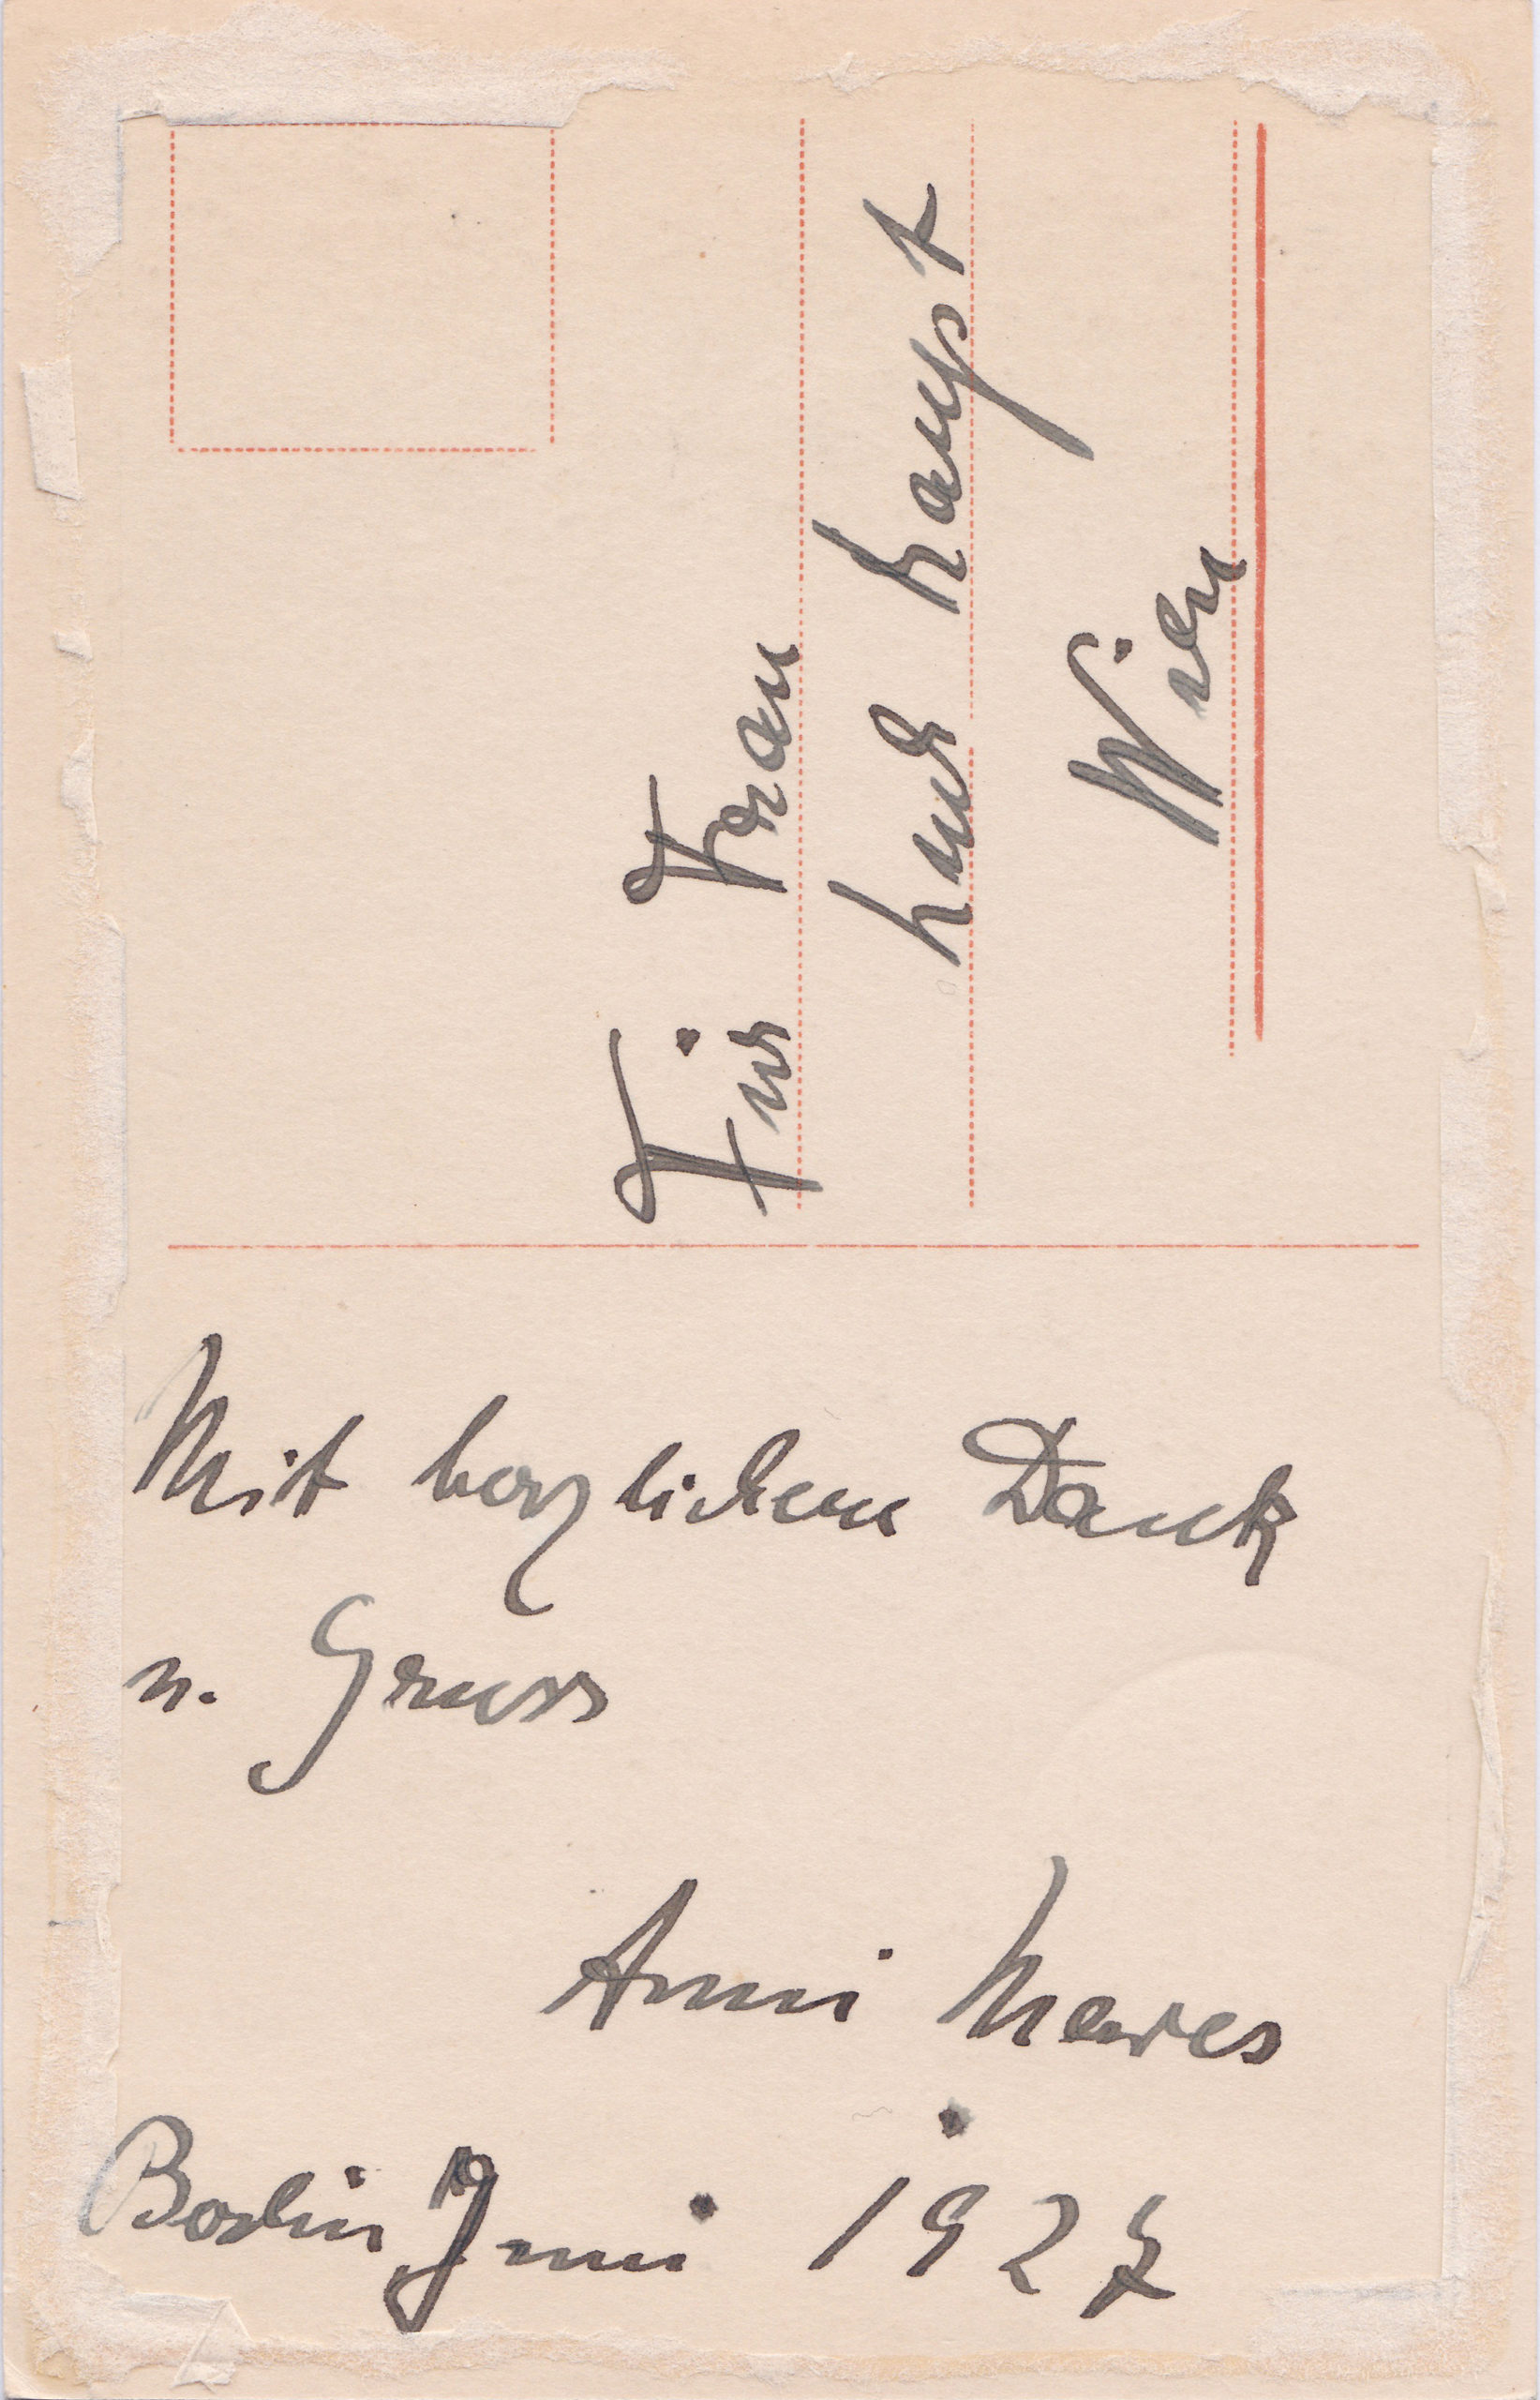 Für Frau
Haupt
Wien
Mit herzlichem Dank
u. Gruss
Anni Mewes
Berlin Juni 1927